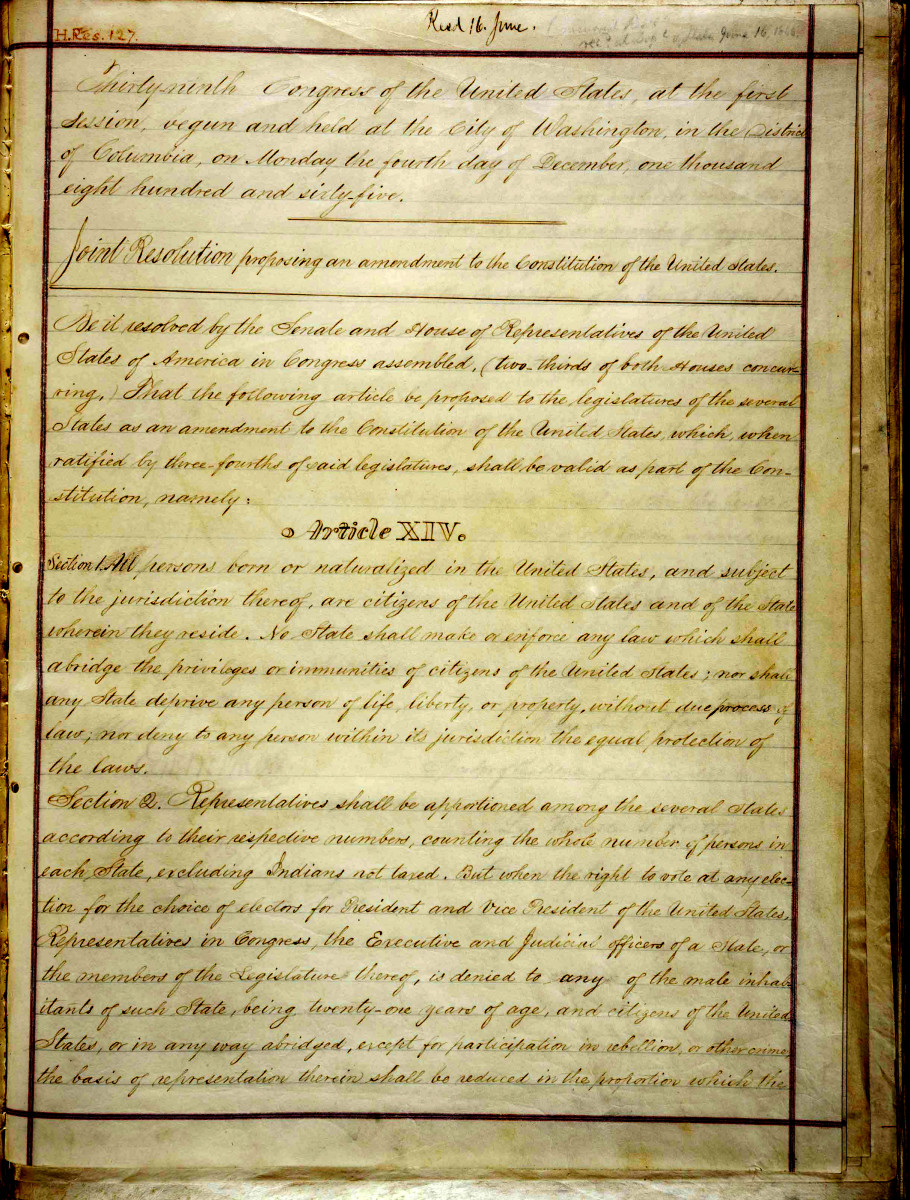 H.Res. 127.
Recd 16. June.
June 16, 1866
Thirty-ninth Congress of the United States, at the first
Session, begun and held at the City of Washington, in the District
of Columbia, on Monday the fourth day of December, one thousand
eight hundred and sixty-five.
Joint Resolution proposing an amendment to the Constitution of the United States.
Be it resolved by the Senate and House of Representatives of the United
States of America in Congress assembled, (two-thirds of both Houses concur-
ring,) That the following article be proposed to the legislatures of the several
States as an amendment to the Constitution of the United States, which, when
ratified by three-fourths of said legislatures, shall be valid as part of the Con-
stitution, namely:
Article XIV.
Section 1. All persons born or naturalized in the United States, and subject
to the jurisdiction thereof, are citizens of the United States and of the State
wherein they reside. No State shall make or enforce any law which shall
abridge the privileges or immunities of citizens of the United States; nor shall
any State deprive any person of life, liberty, or property, without due process of
law; nor deny to any person within its jurisdiction the equal protection of
the laws.
Section 2. Representatives shall be apportioned among the several States
according to their respective numbers, counting the whole number of persons in
each State, excluding Indians not taxed. But when the right to vote at any elec-
tion for the choice of electors for President and Vice President of the United States,
Representatives in Congress, the Executive and Judicial officers of a State, or
the members of the Legislature thereof, is denied to any of the male inhab-
itants of such State, being twenty-one years of age, and citizens of the United
States, or in any way abridged, except for participation in rebellion, or other crime,
the basis of representation therein shall be reduced in the proportion which the